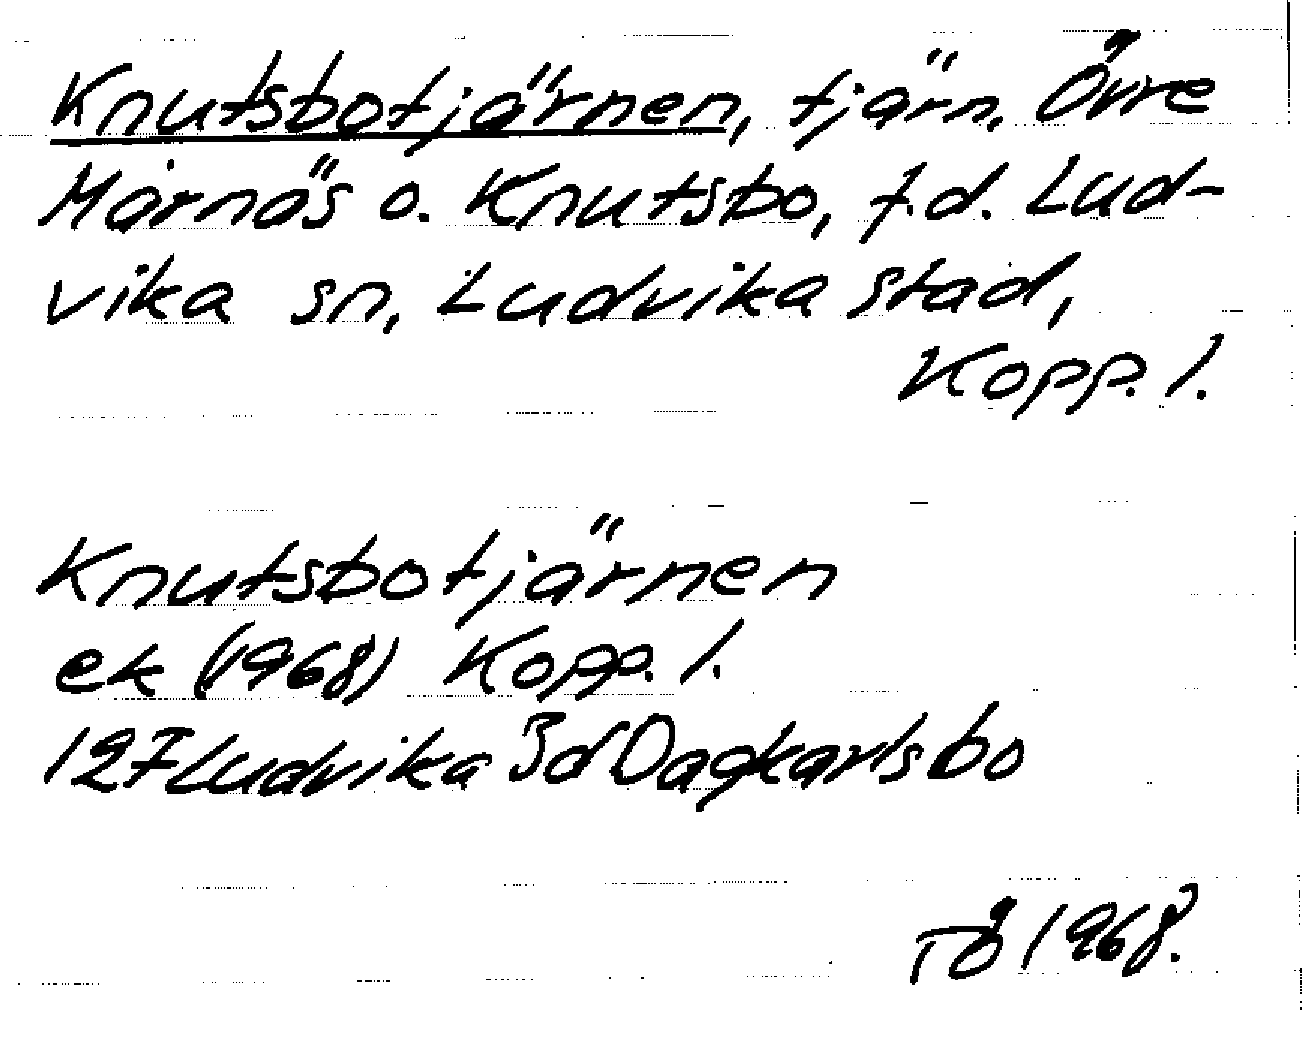 Knutsbotjärnen, tjärn, Övre
Mårnäs o. Knutsbo, f.d. Lud-
vika sn, Ludvika stad,
Kopp. l.
Knutsbotjärnen
ek (1968) Kopp. l.
12F Ludvika 3d Dagkarlsbo
TÖ 1968.